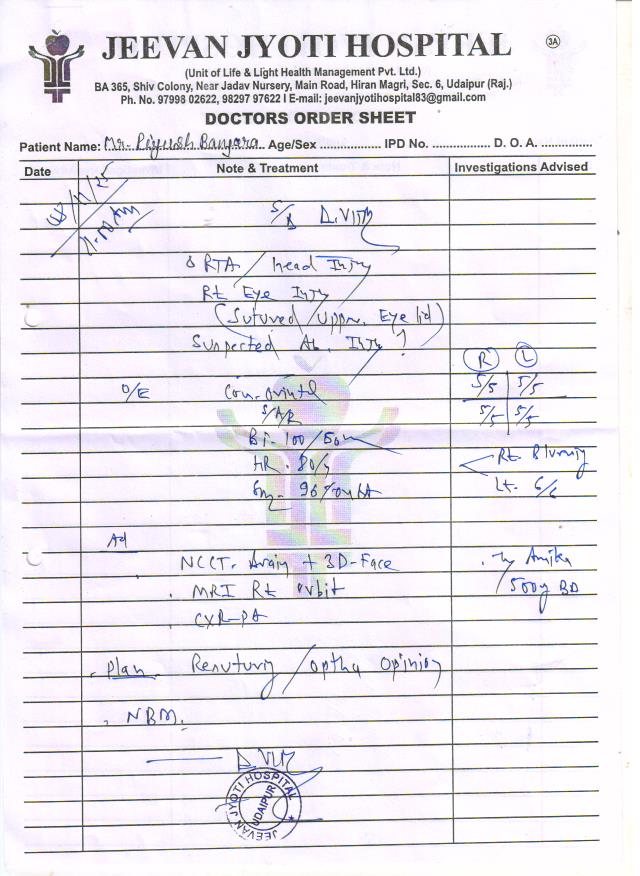 JEEVAN JYOTI HOSPITAL
3A
(Unit of Life & Light Health Management Pvt. Ltd.)
BA 365, Shiv Colony, Near Jadav Nursery, Main Road, Hiran Magri, Sec. 6, Udaipur (Raj.)
Ph. No. 97998 02622, 98297 97622 I E-mail: jeevanjyotihospital83@gmail.com
DOCTORS ORDER SHEET
Patient Name: Mr. Piyush Banjara Age/Sex ................. IPD No. ................ D. O. A. ..............
Date Note & Treatment Investigations Advised
/11/25
S/B
RTA / Head Injury
Rt Eye Injury
(Sutured / Upper Eye lid)
Suspected Injury ?
R L
O/E 5/5 5/5
5/5 5/5
100/50
HR - 80/
Rt Blurring
96%
Lt. 6/6
Ad
NCCT - Brain + 3D-Face
MRI Rt orbit
500 BD
CXR-PA
Plan Resuturing / Optha Opinion
NBM.
JEEVAN JYOTI HOSPITAL
UDAIPUR